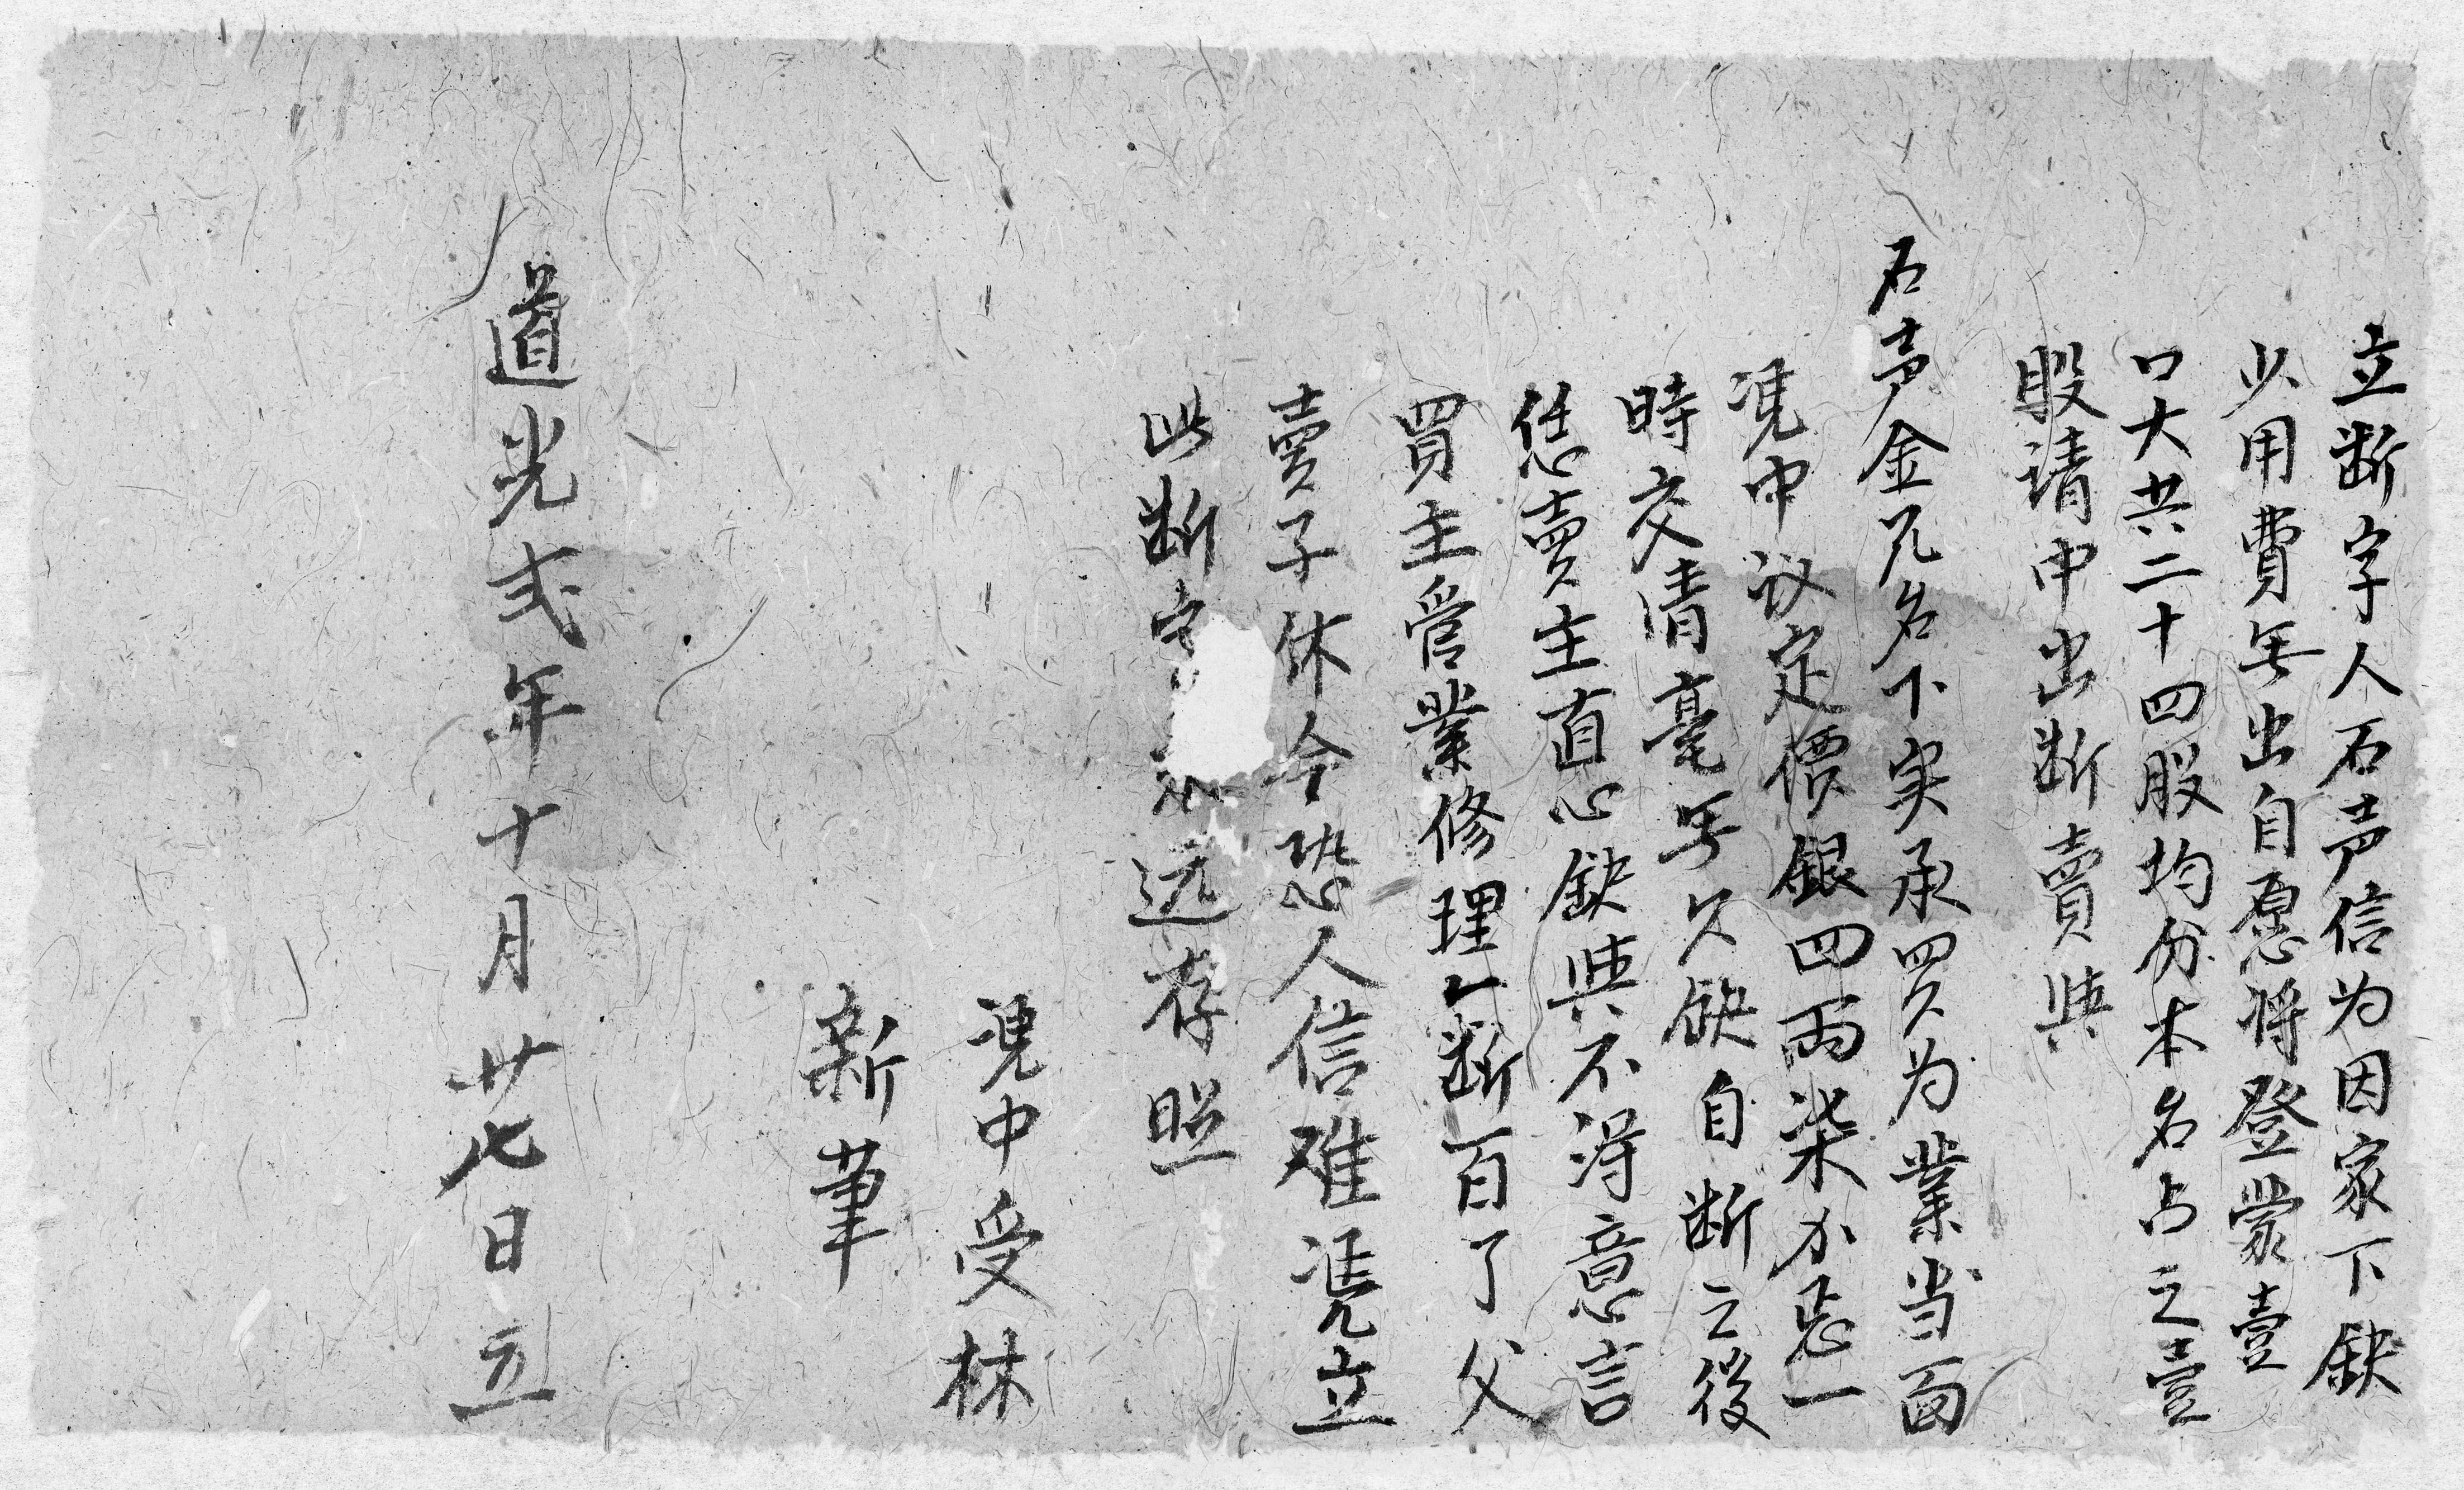 立断字人石声信为因家下缺
少用費无出自愿将登蒙壹
口大共二十四股均分本名占之壹
股请中出断賣與
石声金兄名下実承買为業当面
凴中议定價銀四両柒卜㤙一
時交清毫無欠缺自断之後
恁賣主直心缺與不得意言
買主管業修理一断百了父
賣子休今恐人信难凭立
此断字永远存照
凴中受林
新筆
道光弍年十月廿七日立